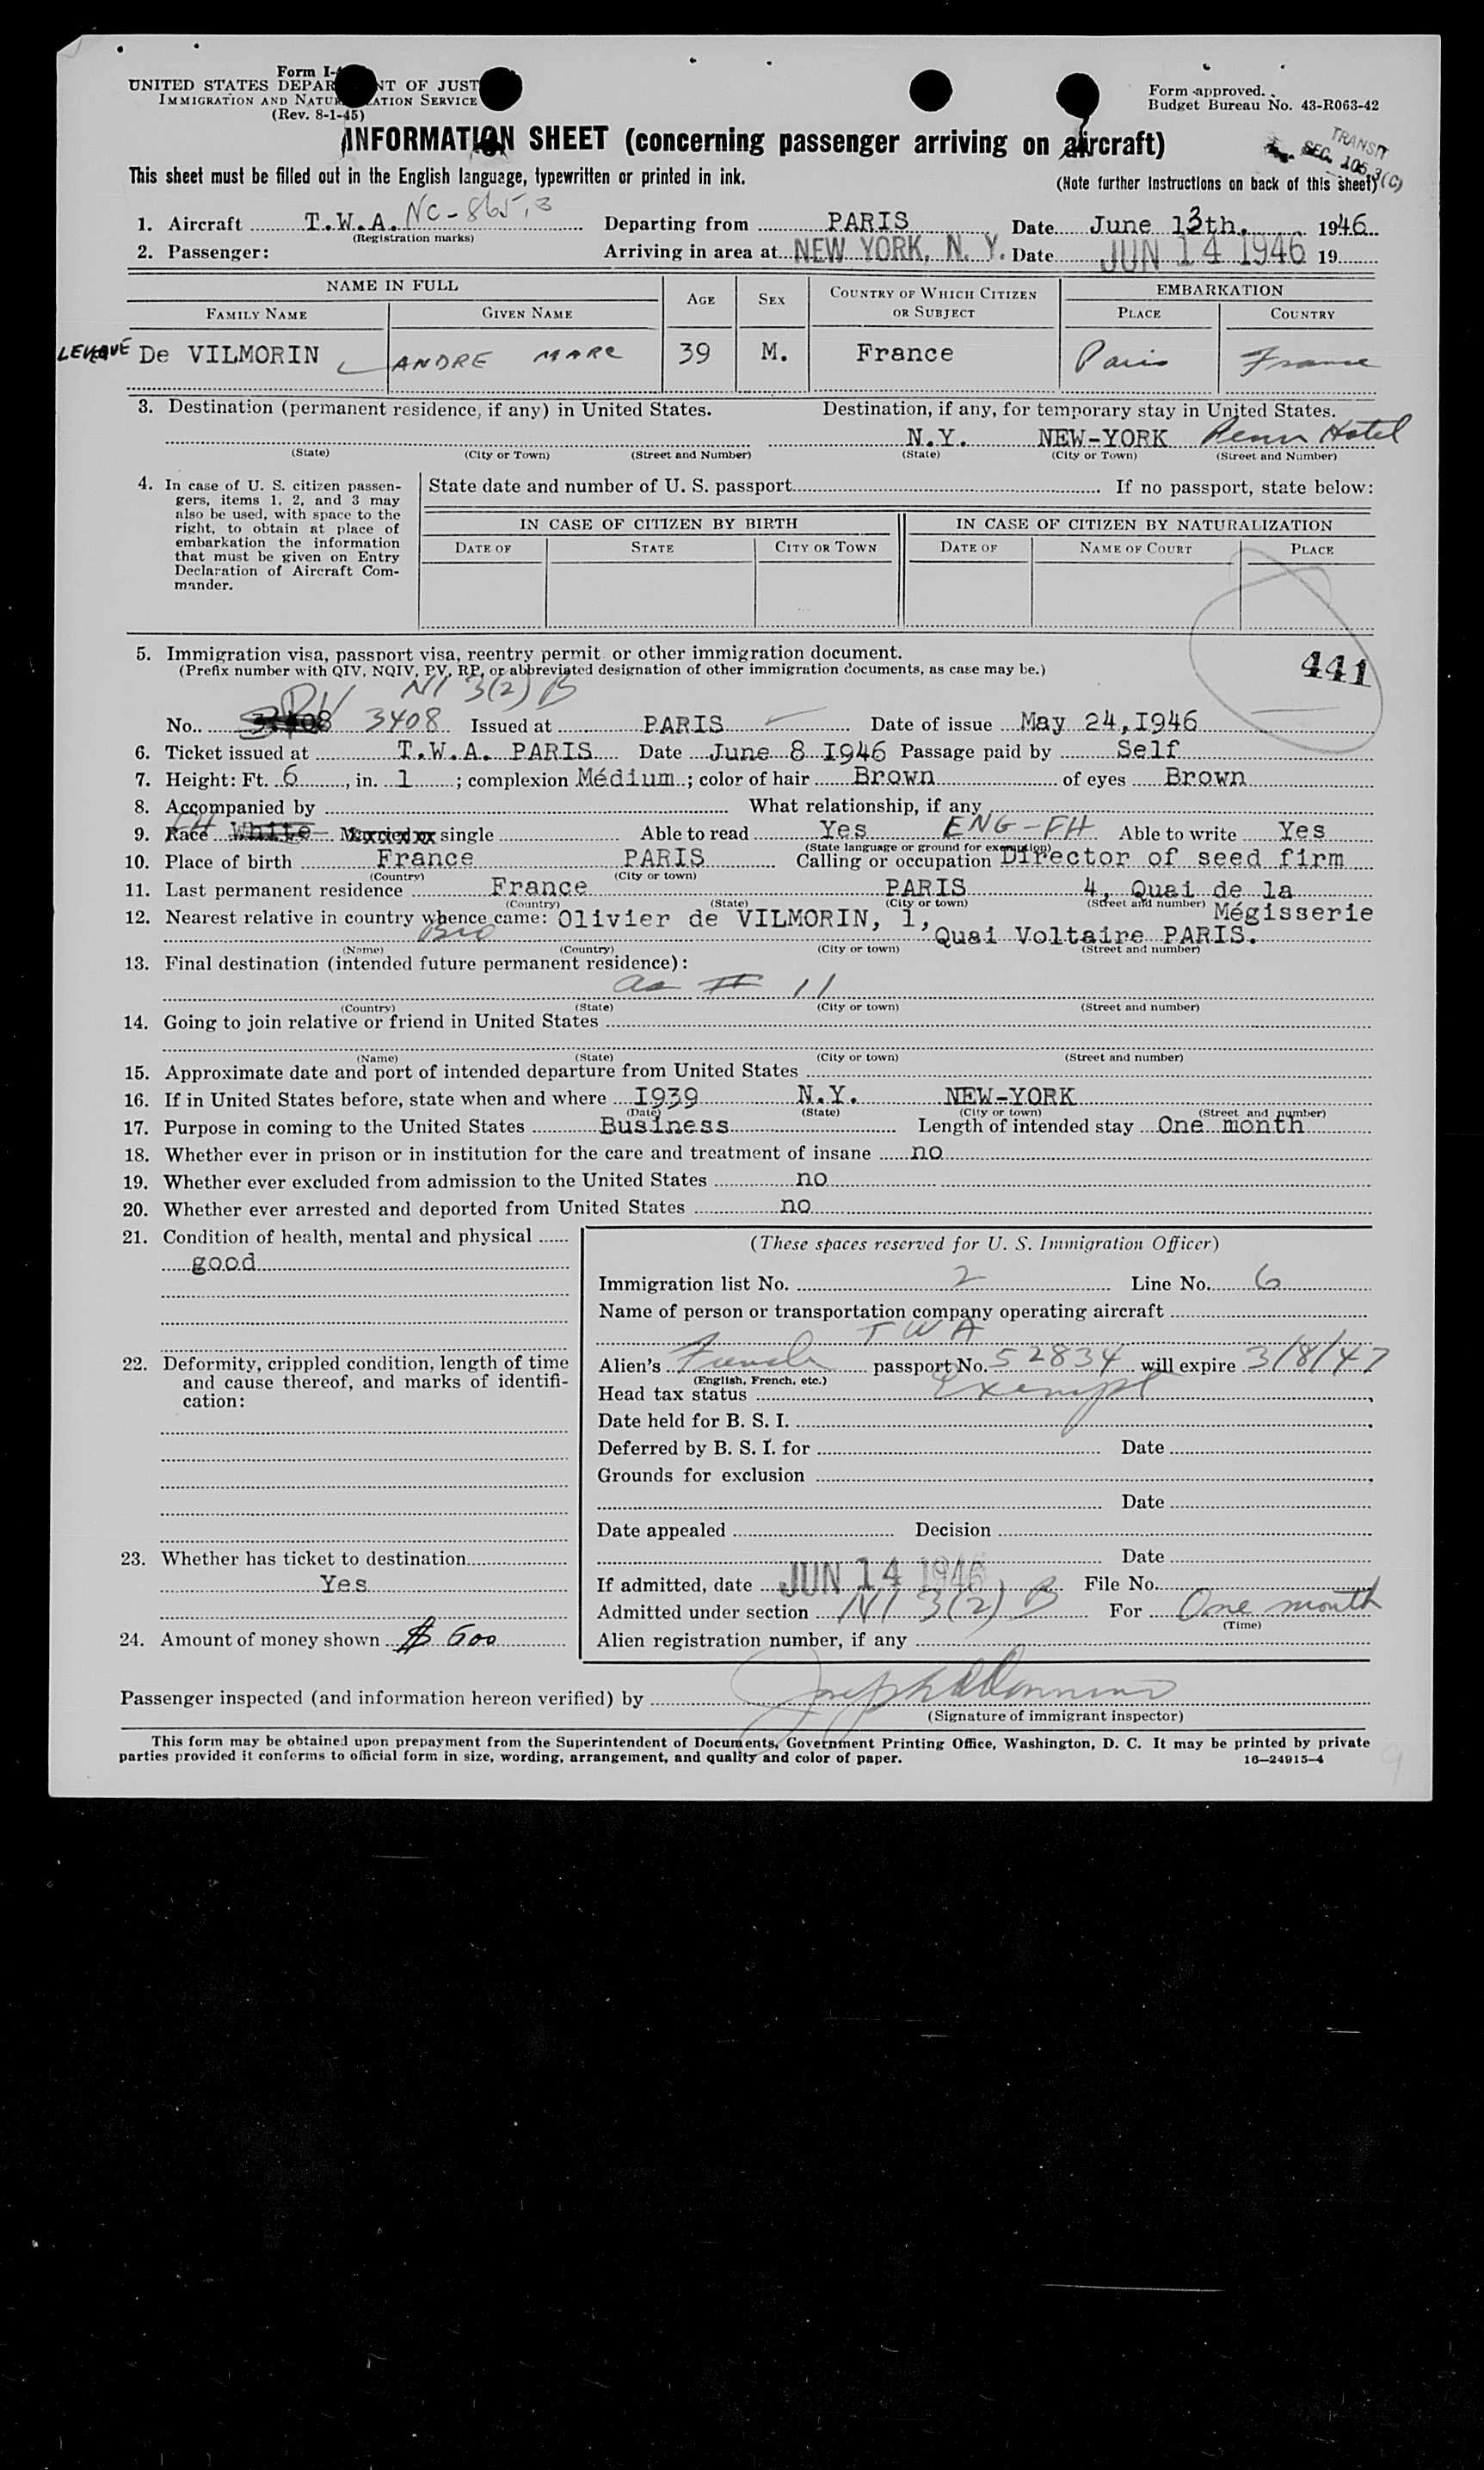 Form I-
UNITED STATES DEPAR NT OF JUST
IMMIGRATION AND NATUR ATION SERVICE
(Rev. 8-1-45)
Form approved.
Budget Bureau No. 43-R063-42
INFORMATION SHEET (concerning passenger arriving on aircraft)
TRANSIT
SEC. 105.3(C)
This sheet must be filled out in the English language, typewritten or printed in ink.
(Note further instructions on back of this sheet)
1. Aircraft T.W.A. NC-86513 Departing from PARIS Date June 13th. 1946
(Registration marks)
2. Passenger: Arriving in area at NEW YORK, N. Y. Date JUN 14 1946 19
NAME IN FULL AGE SEX COUNTRY OF WHICH CITIZEN OR SUBJECT EMBARKATION
FAMILY NAME GIVEN NAME PLACE COUNTRY
De VILMORIN ANDRE MARC 39 M. France Paris France
3. Destination (permanent residence, if any) in United States. Destination, if any, for temporary stay in United States.
N.Y. NEW-YORK Penn Hotel
(State) (City or Town) (Street and Number) (State) (City or Town) (Street and Number)
4. In case of U. S. citizen passengers, items 1, 2, and 3 may also be used, with space to the right, to obtain at place of embarkation the information that must be given on Entry Declaration of Aircraft Commander.
State date and number of U. S. passport If no passport, state below:
IN CASE OF CITIZEN BY BIRTH IN CASE OF CITIZEN BY NATURALIZATION
DATE OF STATE CITY OR TOWN DATE OF NAME OF COURT PLACE
5. Immigration visa, passport visa, reentry permit or other immigration document.
(Prefix number with QIV, NQIV, PV, RP, or abbreviated designation of other immigration documents, as case may be.)
441
PV NI 3(2) B
No. 3408 3408 Issued at PARIS Date of issue May 24, I946
6. Ticket issued at T.W.A. PARIS Date June 8 I946 Passage paid by Self
7. Height: Ft. 6, in. 1; complexion Médium; color of hair Brown of eyes Brown
8. Accompanied by What relationship, if any
9. Race White FH Married or single Able to read Yes ENG-FH Able to write Yes
(State language or ground for exemption)
10. Place of birth France PARIS Calling or occupation Director of seed firm
(Country) (City or town)
11. Last permanent residence France PARIS 4, Quai de la Mégisserie
(Country) (State) (City or town) (Street and number)
12. Nearest relative in country whence came: Olivier de VILMORIN, 1,
Bro Quai Voltaire PARIS.
(Name) (Country) (City or town) (Street and number)
13. Final destination (intended future permanent residence):
as # 11
(Country) (State) (City or town) (Street and number)
14. Going to join relative or friend in United States
(Name) (State) (City or town) (Street and number)
15. Approximate date and port of intended departure from United States
16. If in United States before, state when and where I939 N.Y. NEW-YORK
(Date) (State) (City or town) (Street and number)
17. Purpose in coming to the United States Business Length of intended stay One month
18. Whether ever in prison or in institution for the care and treatment of insane no
19. Whether ever excluded from admission to the United States no
20. Whether ever arrested and deported from United States no
21. Condition of health, mental and physical
good
22. Deformity, crippled condition, length of time and cause thereof, and marks of identification:
23. Whether has ticket to destination
Yes
24. Amount of money shown $ 600
(These spaces reserved for U. S. Immigration Officer)
Immigration list No. 2 Line No. 6
Name of person or transportation company operating aircraft
TWA
Alien's French passport No. 52834 will expire 3/8/47
(English, French, etc.)
Head tax status Exempt
Date held for B. S. I.
Deferred by B. S. I. for Date
Grounds for exclusion
Date
Date appealed Decision
Date
If admitted, date JUN 14 1946 File No.
Admitted under section NI 3(2) B For One month
(Time)
Alien registration number, if any
Passenger inspected (and information hereon verified) by
(Signature of immigrant inspector)
This form may be obtained upon prepayment from the Superintendent of Documents, Government Printing Office, Washington, D. C. It may be printed by private
parties provided it conforms to official form in size, wording, arrangement, and quality and color of paper.
16—24915-4
9